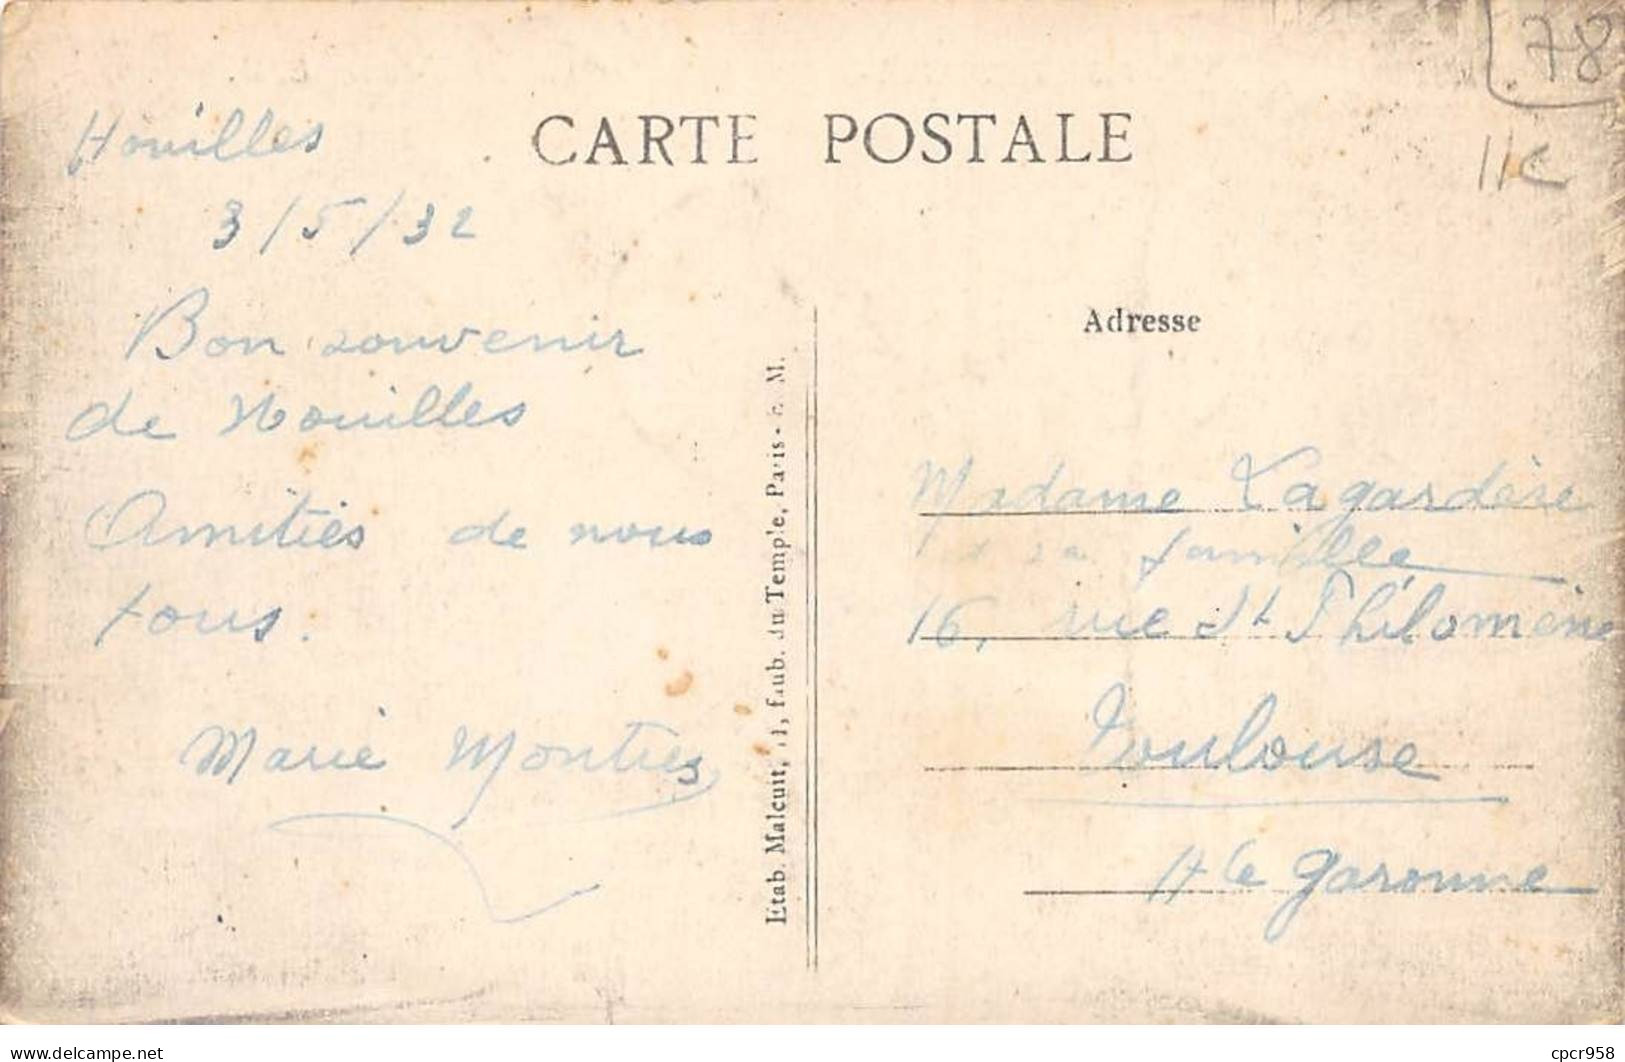 78
11€
CARTE POSTALE
Houilles
3/5/32
Bon souvenir
de Houilles
Amitiés de nous
tous.
Marie Monties
Etab. Malcuit, 41, faub. du Temple, Paris - E. M.
Adresse
Madame Lagardère
sa famille
16, rue St Philomène
Toulouse
Hte Garonne
www.delcampe.net
cpcr958